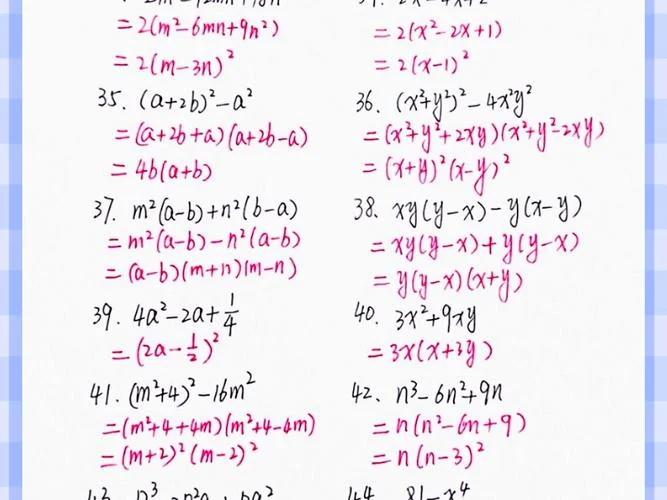 =2(m²-6mn+9n²)
=2(m-3n)²
=2(x²-2x+1)
=2(x-1)²
35. (a+2b)²-a²
=(a+2b+a)(a+2b-a)
=4b(a+b)
36. (x²+y²)²-4x²y²
=(x²+y²+2xy)(x²+y²-2xy)
=(x+y)²(x-y)²
37. m²(a-b)+n²(b-a)
=m²(a-b)-n²(a-b)
=(a-b)(m+n)(m-n)
38. xy(y-x)-y(x-y)
=xy(y-x)+y(y-x)
=y(y-x)(x+y)
39. 4a²-2a+1/4
=(2a-1/2)²
40. 3x²+9xy
=3x(x+3y)
41. (m²+4)²-16m²
=(m²+4+4m)(m²+4-4m)
=(m+2)²(m-2)²
42. n³-6n²+9n
=n(n²-6n+9)
=n(n-3)²
44. 81-x⁴